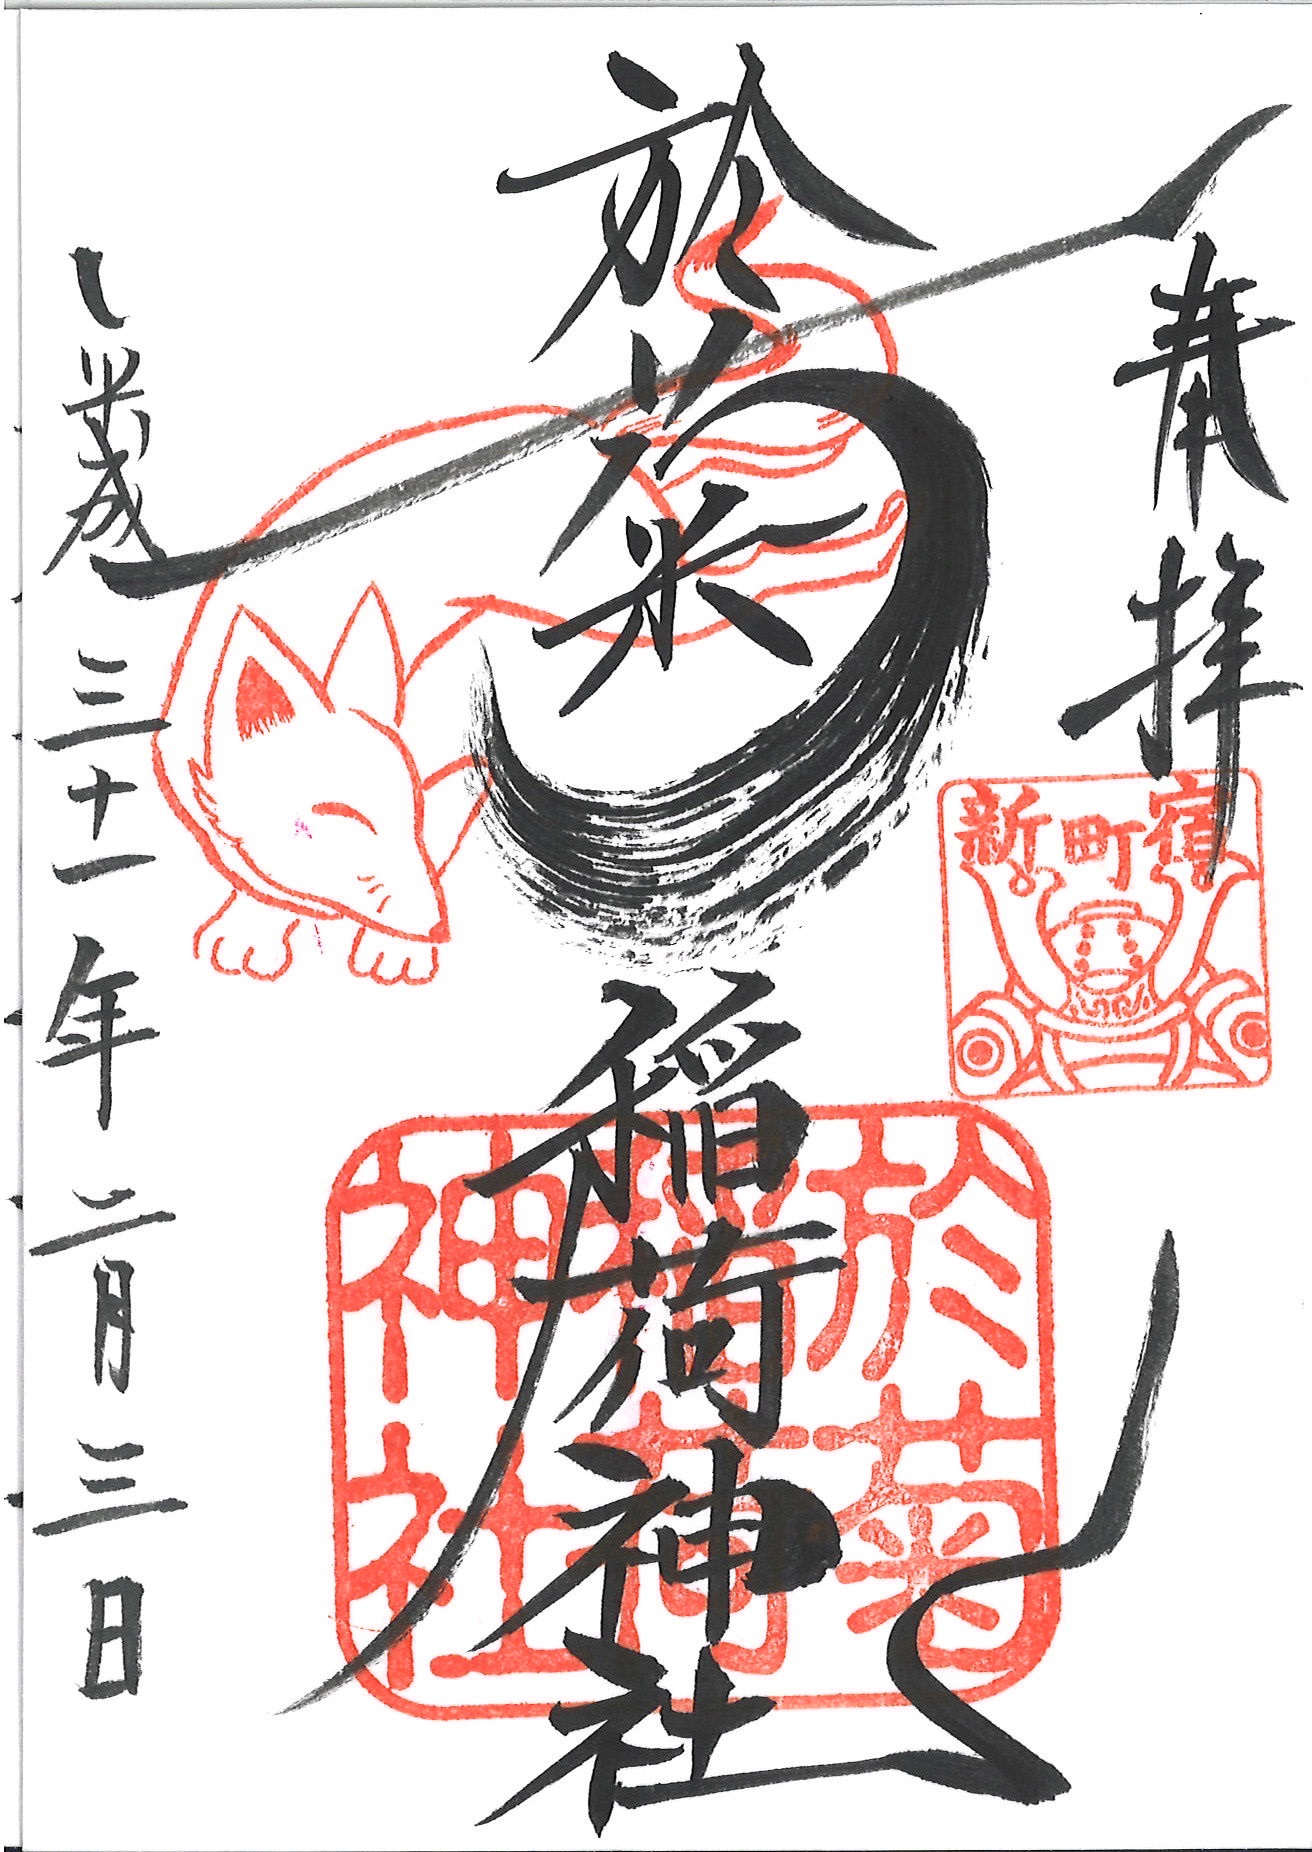 奉拝
新町宿
於菊稲荷神社
於菊
稲荷
神社
平成三十一年二月三日